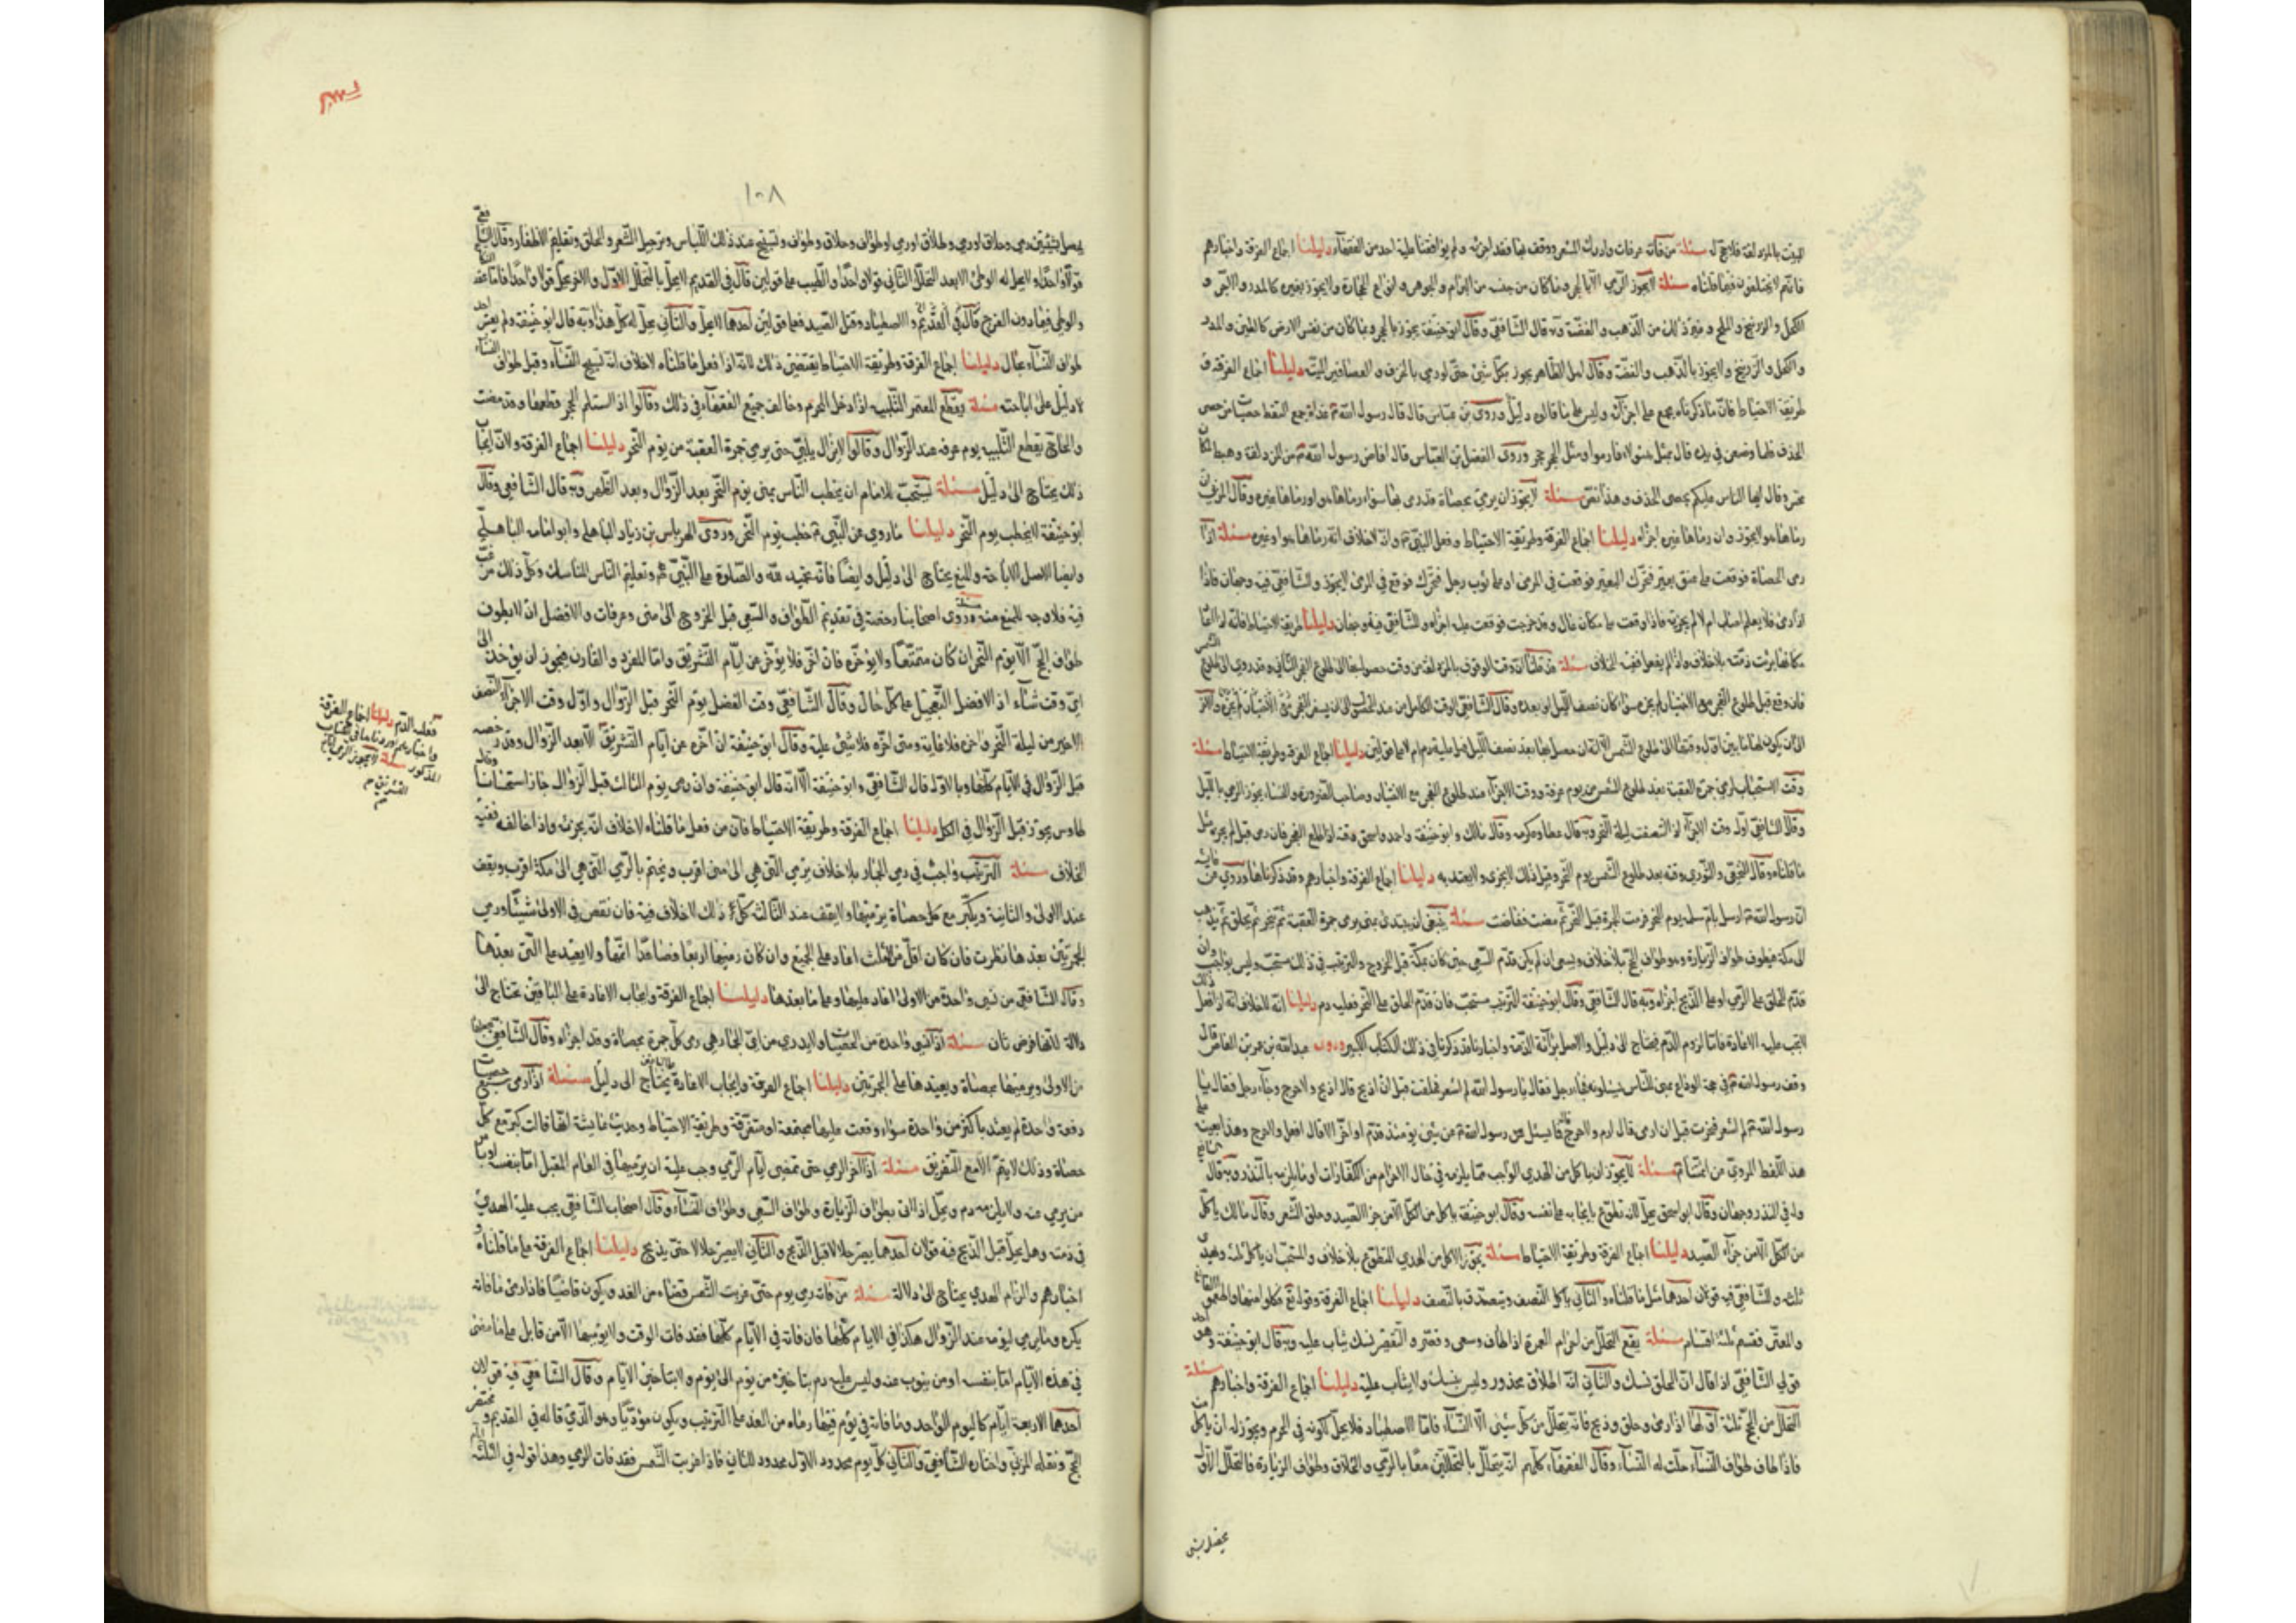 المبيت بالمزدلفة فلا حج له مسئلة من فاته عرفات وادرك المشعر ووقف بها فقد اجزأه ولم يوافقنا عليه احد من الفقهاء دليلنا اجماع الفرقة واخبارهم
فانهم لا يختلفون فيما قلناه مسئلة لا يجوز الرمي الا بالحجر وما كان من جنسه من البرام والجوهر وانواع الحجارة ولا يجوز بغيره كالمدر والاجر و
الكحل والزرنيخ والملح وغير ذلك من الذهب والفضة وبه قال الشافعي وقال ابو حنيفة يجوز بالحجر وبما كان من نفس الارض كالطين والمدر
والكحل والزرنيخ ولا يجوز بالذهب والفضة وقال اهل الظاهر يجوز بكل شئ حتى لو رمى بالخرق والعصافير الميتة دليلنا اجماع الفرقة و
طريقة الاحتياط فان ما ذكرناه مجمع على اجزائه وليس على ما قالوه دليل وروى بن عباس قال قال رسول الله غداة جمع القط حصيات من حصى
الخذف فلما وضعهن في يده قال بمثل هؤلاء فارموا ومثل الحجر حجر وروى الفضل بن العباس قال افاض رسول الله من المزدلفة وهبط
محسر وقال ايها الناس عليكم بحصى الخذف وهذا نص مسئلة لا يجوز ان يرمي بحصاة قد رمى بها سواء رماها هو او رماها غيره وقال المزني ان
رماها هو لا يجوز وان رماها غيره اجزأه دليلنا اجماع الفرقة وطريقة الاحتياط وفعل النبي وانه لا خلاف انه رماها هو او غيره مسئلة اذا
رمى الحصاة فوقعت على عنق بعير فتحرك البعير فوقعت في المرمى او على ثوب رجل فتحرك فوقع في المرمى لا يجوز وللشافعي فيه وجهان فاذا
اذا رمى فلا يعلم اصاب ام لا لم يجزيه فاذا وقعت على مكان عال وتدحرجت فوقعت عليه اجزأه وللشافعي فيه وجهان دليلنا طريقة الاحتياط
مكانها برئت ذمته بلا خلاف واذا لم يفعل ففيه الخلاف مسئلة قد قلنا ان وقت الوقوف بالمزدلفة من وقت حصوله بها الى طلوع الفجر الثاني وقد روي الى طلوع الشمس
فان دفع قبل طلوع الفجر مع الاختيار لم يجزه سواء كان نصف الليل او بعده وقال الشافعي الوقت الكامل من عند
دليلنا اجماع الفرقة وطريقة الاحتياط مسئلة
وقت الاستحباب لرمي جمرة العقبة بعد طلوع الشمس من يوم عرفة ووقت الاجزاء عند طلوع الفجر مع الاختيار وصاحب الضرورة والنساء يجوز الرمي بالليل
وقال الشافعي اول وقت الاجزاء اذا انتصفت ليلة النحر وبه قال عطا وعكرمه وقال مالك وابو حنيفة واحمد واسحق وقته اذا طلع الفجر فان رمى قبله لم يجزيه دليل
ما قلناه وقال النخعي والثوري وقته بعد طلوع الشمس يوم النحر وقبل ذلك لا يجزى ولا يعتد به دليلنا اجماع الفرقة واخبارهم وقد ذكرناها وروي عن عايشة
ان رسول الله ارسل بام سلمة يوم النحر فرمت الجمرة قبل الفجر ثم مضت فافاضت مسئلة ينبغي ان يبتدى بمنى برمى جمرة العقبة ثم ينحر ثم يحلق ثم يذهب
الى مكة فيطوف طواف الزيارة وهو طواف الحج بلا خلاف ويسعى ان لم يكن قدم السعي حين كان بمكة قبل الخروج والترتيب في ذلك مستحب وليس بواجب وان
قدم الحلق على الرمي او على الذبح اجزأه وبه قال الشافعي وقال ابو حنيفة الترتيب مستحب فان قدم الحلق على النحر فعليه دم دليلنا انه لا خلاف انه اذا فعل ذلك
لا تجب عليه الاعادة فاما لزوم الدم فيحتاج الى دليل والاصل براءة الذمة واخبارنا قد ذكرناها في ذلك الكتاب الكبير وروى عبد الله بن عمر بن العاص قال
وقف رسول الله في حجة الوداع بمنى للناس يسئلونه فجاء رجل فقال يا رسول الله لم اشعر فحلقت قبل ان اذبح قال اذبح ولا حرج وجاء رجل فقال يا
رسول الله لم اشعر فنحرت قبل ان ارمى قال ارم ولا حرج قال فما سئل عن رسول الله عن شئ يومئذ قدم او اخر الا قال افعل ولا حرج وهذا بعينه
هذا اللفظ المروي من ائمتنا مسئلة لا يجوز ان ياكل من الهدي الواجب مما يلزمه في حال الاحرام من الكفارات او ما يلزمه بالنذر وبه قال الشافعي
وله في النذر وجهان وقال ابو اسحق يحل لانه تطوع بايجابه على نفسه وقال ابو حنيفة ياكل من الكل الا من جزاء الصيد وحلق الشعر وقال مالك ياكل
من الكل الا من جزاء الصيد دليلنا اجماع الفرقة وطريقة الاحتياط مسئلة يجوز الاكل من الهدي المتطوع بلا خلاف والمستحب ان ياكل ثلثه ويهدي
ثلثه وللشافعي فيه قولان احدهما مثل ما قلناه والثاني ياكل النصف ويتصدق بالنصف دليلنا اجماع الفرقة وقوله تع فكلوا منها واطعموا القانع
والمعتر فقسم ثلثة اقسام مسئلة يقع التحلل من احرام العمرة اذا طاف وسعى وقصر والتقصير نسك يثاب عليه وبه قال ابو حنيفة وهو احد
قولي الشافعي اذا قال ان الحلق نسك والثاني انه اطلاق محذور وليس بنسك ولا يثاب عليه دليلنا اجماع الفرقة واخبارهم مسئلة
التحلل من الحج ثلثة اولها اذا رمى وحلق وذبح فانه يتحلل من كل شئ الا النساء فاما الاصطياد فلا يحل لكونه في الحرم ويجوز له ان ياكل
فاذا طاف طواف النساء حلت له النساء وقال الفقهاء كلهم انه يتحلل بالتحللين معا بالرمي والحلاق وطواف الزيارة فالتحلل الاول
يحصل بشئ
١٠٨
يحصل بشيئين رمي وحلاق او رمي وطواف او حلاق وطواف ويستبيح عند ذلك اللباس وترجيل الشعر والحلق وتقليم الاظفار وقال الشافعي
قولا واحدا ولا يحل له الوطئ الا بعد التحلل الثاني قولا واحدا والطيب على قولين قال في القديم لا يحل بالتحلل الاول والاخر يحل قولا واحدا فاما عقد النكاح
والوطى فيما دون الفرج قال في القديم والاصطياد وقتل الصيد فعلى قولين احدهما لا يحل والثاني يحل له كل هذا وبه قال ابو حنيفة ولم يعتبر احد
طواف النساء بحال دليلنا اجماع الفرقة وطريقة الاحتياط يقتضى ذلك لانه اذا فعل ما قلناه لا خلاف انه تستبيح النساء وقبل طواف النساء
لا دليل على اباحته مسئلة يقطع المعتمر التلبية اذا دخل الحرم وخالف جميع الفقهاء في ذلك وقالوا اذا استلم الحجر قطعها وقد مضت
والحاج يقطع التلبية يوم عرفه عند الزوال وقالوا لا يزال يلبي حتى يرمي جمرة العقبة من يوم النحر دليلنا اجماع الفرقة ولان ايجاب
ذلك يحتاج الى دليل مسئلة يستحب للامام ان يخطب الناس بمنى يوم النحر بعد الزوال وبعد الظهر وبه قال الشافعي وقال
ابو حنيفة لا يخطب يوم النحر دليلنا ما روي عن النبي خطب يوم النحر وروى الهرماس بن زياد الباهلي وابو امامه الباهلي
وايضا الاصل الاباحة والمنع يحتاج الى دليل وايضا فانه تحميد لله والصلوة على النبي وتعليم الناس المناسك وكل ذلك مرغب
فيه فلا وجه للمنع منه مسئلة وروى اصحابنا رخصة في تقديم الطواف والسعي قبل الخروج الى منى وعرفات والافضل ان لا يطوف
طواف الحج الا يوم النحر ان كان متمتعا ولا يؤخره فان اخر فلا يؤخر عن ايام التشريق واما المفرد والقارن فيجوز ان يؤخر الى
اي وقت شاء اذ الافضل التعجيل على كل حال وقال الشافعي وقت الفضل يوم النحر قبل الزوال واول وقت الاجزاء النصف
الاخير من ليلة النحر واخره فلا غاية ومتى اخره فلا شئ عليه وقال ابو حنيفة ان اخره عن ايام التشريق الا بعد الزوال وقد رخصه
قبل الزوال في الايام كلها وبالاول قال الشافعي وابو حنيفة الا انه قال ابو حنيفة وان رمى يوم الثالث قبل الزوال جاز استحسانا وقال
طاوس يجوز قبل الزوال في الكل دليلنا اجماع الفرقة وطريقة الاحتياط فان من فعل ما قلناه لا خلاف انه يجزئه واذا خالفه ففيه
الخلاف مسئلة الترتيب واجب في رمي الجمار بلا خلاف يرمي التي هي الى منى اقرب ويختم بالرمي التي هي الى مكة اقرب ويقف
عند الاولى والثانية ويكبر مع كل حصاة يرميها ولا يقف عند الثالثة كل ذلك لا خلاف فيه فان نقص في الاولى شيئا ورمي
الجمرتين بعدها نظرت فان كان اقل من الثلث اعاد على الجميع وان كان رميها اربعا وصاعدا اتمها ولا يعيد على التي بعدها
وقال الشافعي من نسي واحدة من الاولى اعاد عليها وعلى ما بعدها دليلنا اجماع الفرقة وايجاب الاعادة على الباقين يحتاج الى
دلالة لانها فرض ثان مسئلة اذا نسي واحدة من الحصيات ولا يدري من اي الجمار هي رمى كل جمرة بحصاة وقد اجزأه وقال الشافعي يجعلها
من الاولى ويرميها بحصاة ويعيدها على الجمرتين دليلنا اجماع الفرقة وايجاب الاعادة يحتاج الى دليل مسئلة اذا رمى سبع حصيات
دفعة واحدة لم يعتد باكثر من واحدة سواء وقعت عليها مجتمعة او متفرقة وطريقة الاحتياط وحديث عايشة انها قالت كبر مع كل
حصاة وذلك لا يتم الا مع التفريق مسئلة اذا اخر الرمي حتى تمضى ايام الرمي وجب عليه ان يرميها في العام المقبل اما بنفسه او يامر
من يرمي عنه ولا يلزمه دم ويحل اذا اتى بطواف الزيارة وطواف السعي وطواف النساء وقال اصحاب الشافعي يجب عليه الهدي
في ذمته وهل يحل قبل الذبح فيه قولان احدهما يصير حلالا قبل الذبح والثاني لا يصير حلالا حتى يذبح دليلنا اجماع الفرقة على ما قلناه و
اخبارهم والزام الهدي يحتاج الى دلالة مسئلة من فاته رمي يوم حتى غربت الشمس قضاه من الغد ويكون قاضيا فاذا رمى ما فاته
بكرة وما يرمي ليومه عند الزوال هكذا في الايام كلها فان فاته في الايام كلها فقد فات الوقت ولا يرميها الا من قابل على ما مضى
في هذه الايام اما بنفسه او من ينوب عنه وليس عليه دم بتاخيره من يوم الى يوم ولا بتاخير الايام وقال الشافعي فيه قولان
احدهما الاربعة ايام كاليوم الواحد وما فاته في يوم فيها رماه من الغد على الترتيب ويكون مؤديا وهو الذي قاله في القديم ومختصر
الحج ونقله المزني واختاره الشافعي والثاني كل يوم محدود الاول محدود الثاني فاذا غربت الشمس فقد فات الرمي وهذا قوله في الثلثة
فعليه الدم دليلنا اجماع الفرقة
واخبارهم اوردناها في الكتاب
المذكور مسئلة لا يجوز الرمي ايام
التشريق م